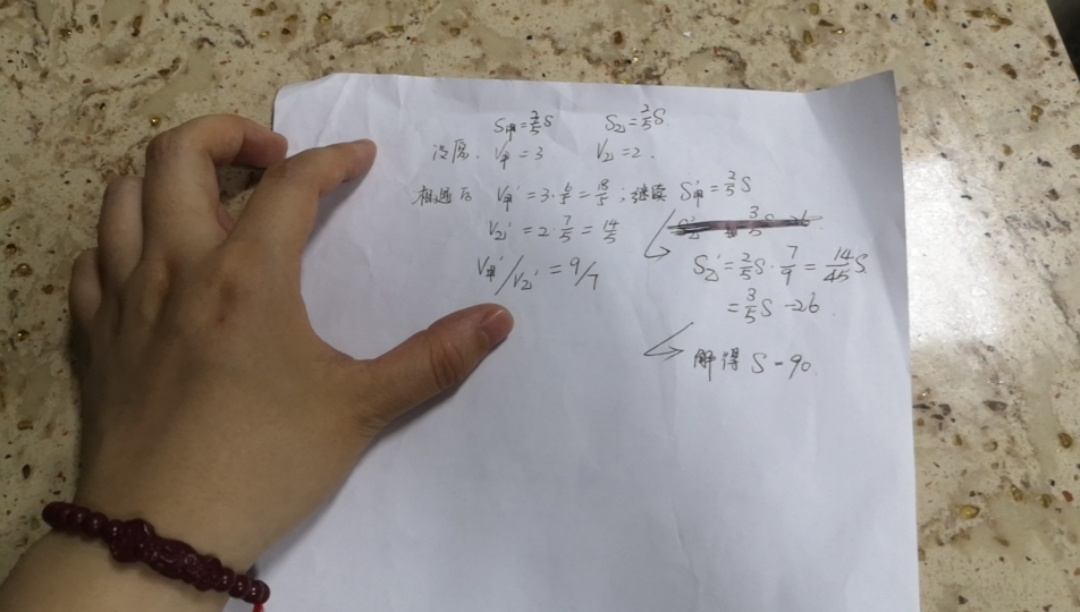 S甲=3/5S S乙=2/5S
设原. V甲=3 V乙=2.
相遇后 V甲'=3·6/5=18/5; 继续 S甲'=2/5S
V乙'=2·7/5=14/5
S乙'=2/5S·7/9=14/45S
V甲'/V乙'=9/7
=3/5S-26.
解得 S=90.